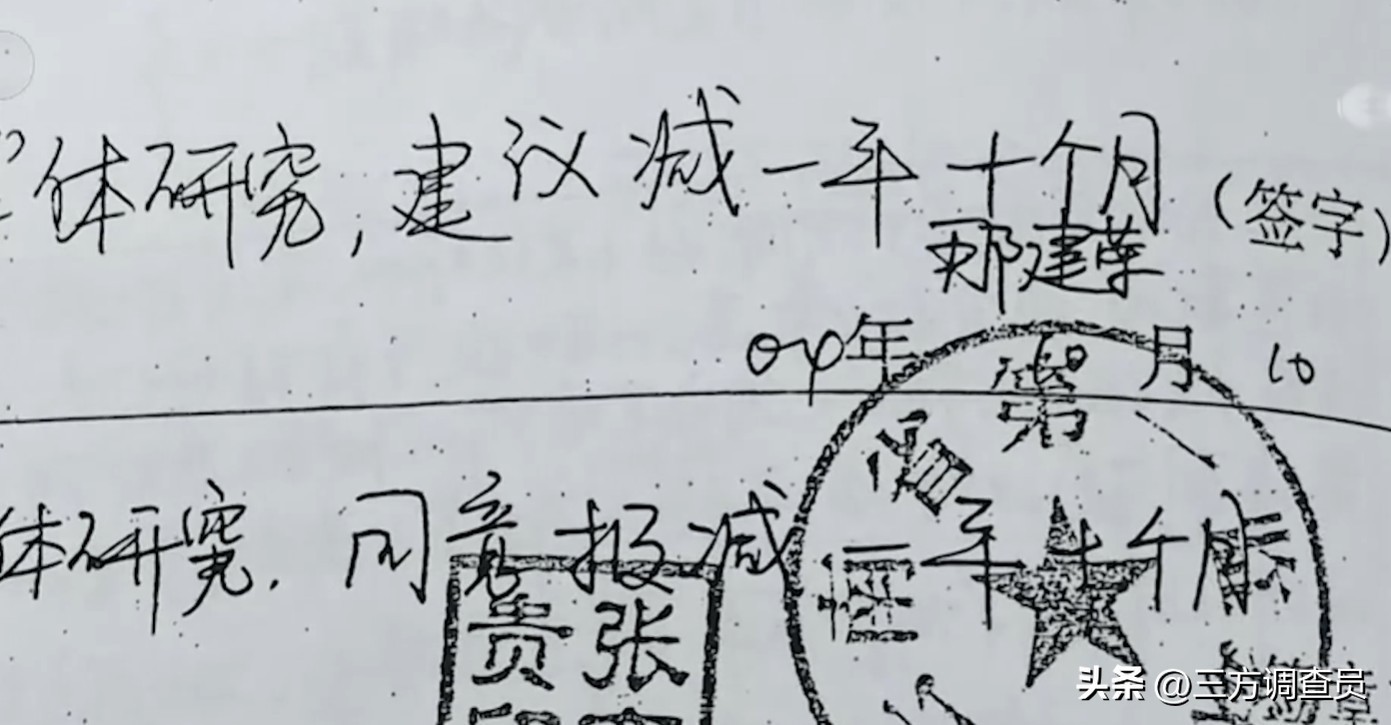 体研究,建议减一年十个月
(签字)
建荣
04年10月10
体研究.同意报减一年十个月
第一
张
贵
头条 @三方调查员